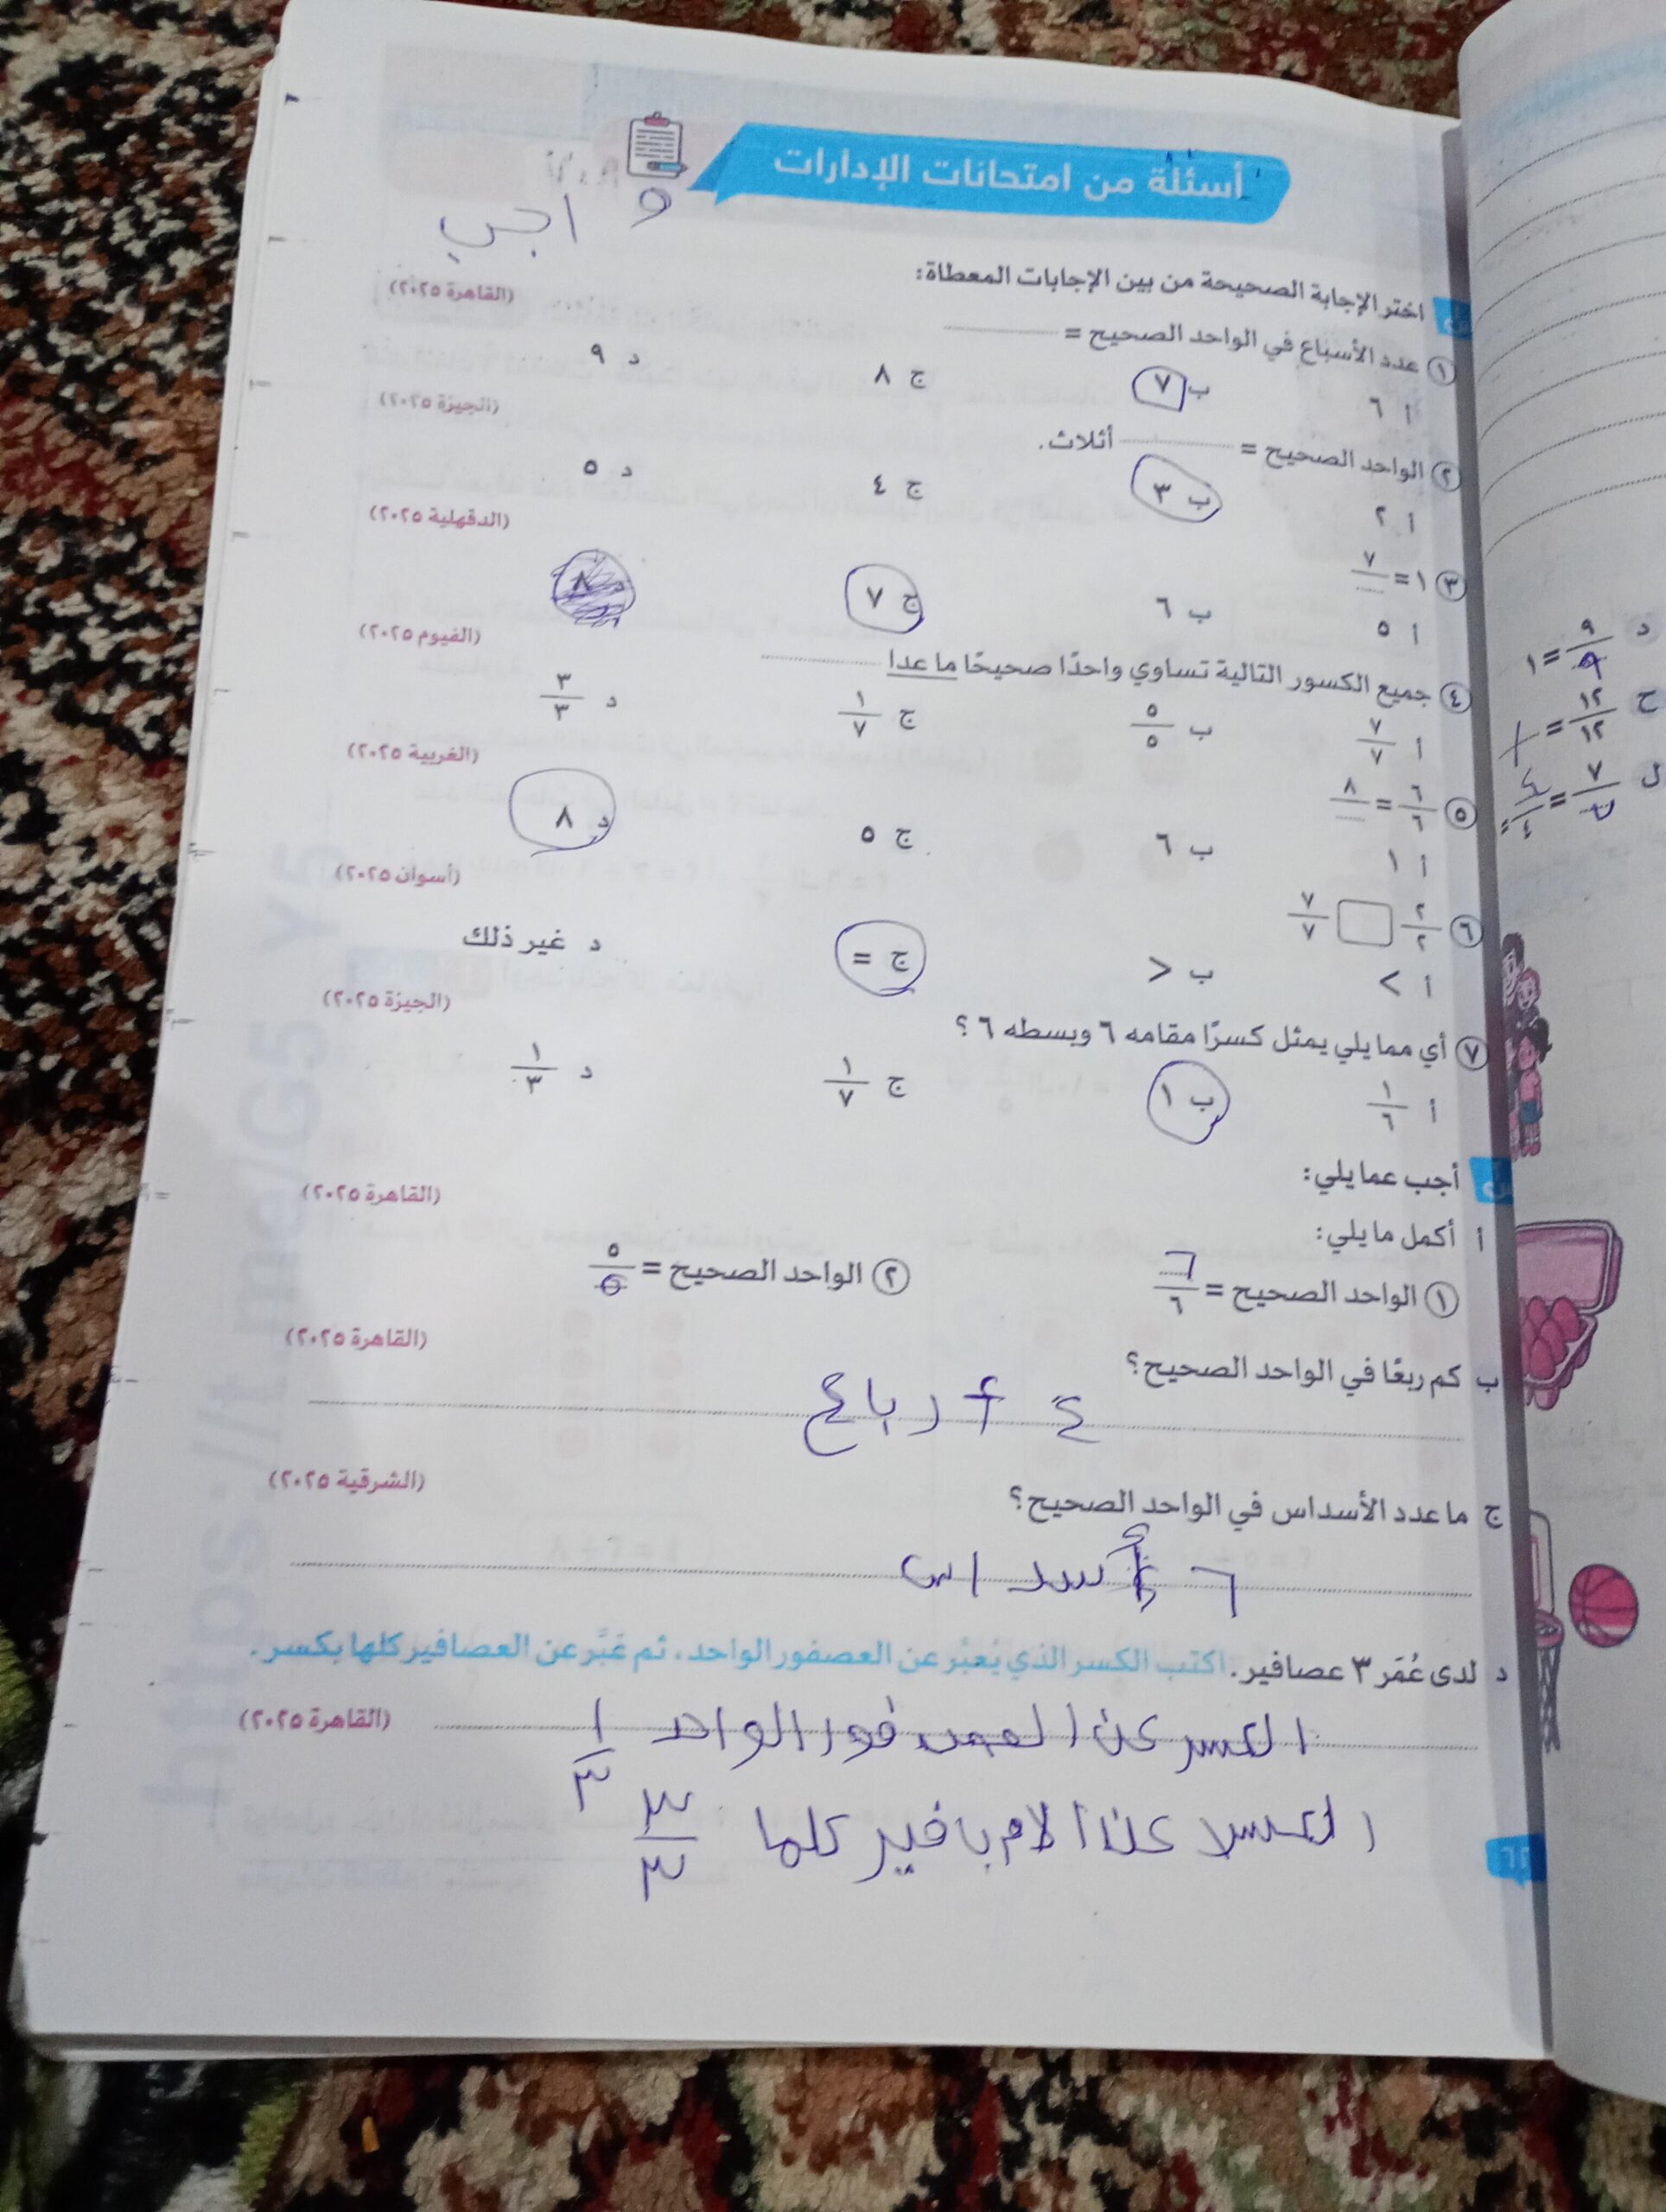 أسئلة من امتحانات الإدارات
اختر الإجابة الصحيحة من بين الإجابات المعطاة:
(القاهرة ٢٠٢٥)
١ عدد الأسباع في الواحد الصحيح =
أ ٦ ب ٧ ج ٨ د ٩
(الجيزة ٢٠٢٥)
٢ الواحد الصحيح = أثلاث.
أ ٢ ب ٣ ج ٤ د ٥
(الدقهلية ٢٠٢٥)
٣ ١ = ٧/...
أ ٥ ب ٦ ج ٧ د ٨
(الفيوم ٢٠٢٥)
٤ جميع الكسور التالية تساوي واحدًا صحيحًا ما عدا
أ ٧/٧ ب ٥/٥ ج ١/٧ د ٣/٣
(الغربية ٢٠٢٥)
٥ ٦/٦ = ٨/...
أ ١ ب ٦ ج ٥ د ٨
(أسوان ٢٠٢٥)
٦ ٢/٢ □ ٧/٧
أ > ب < ج = د غير ذلك
(الجيزة ٢٠٢٥)
٧ أي مما يلي يمثل كسرًا مقامه ٦ وبسطه ٦ ؟
أ ١/٦ ب ١ ج ١/٧ د ١/٣
أجب عما يلي:
(القاهرة ٢٠٢٥)
أ أكمل ما يلي:
١ الواحد الصحيح = ٦/٦ ٢ الواحد الصحيح = ٥/٥
(القاهرة ٢٠٢٥)
ب كم ربعًا في الواحد الصحيح؟
٤ أرباع
(الشرقية ٢٠٢٥)
ج ما عدد الأسداس في الواحد الصحيح؟
٦ أسداس
د لدى عُمَر ٣ عصافير. اكتب الكسر الذي يُعبِّر عن العصفور الواحد، ثم عَبَّر عن العصافير كلها بكسر.
(القاهرة ٢٠٢٥)
الكسر عن العصفور الواحد ١/٣
كلها ٣/٣
٦٢
https://t.me/G5Y5
د ٩/٩ = ١
ج ١٢/١٢ = ١